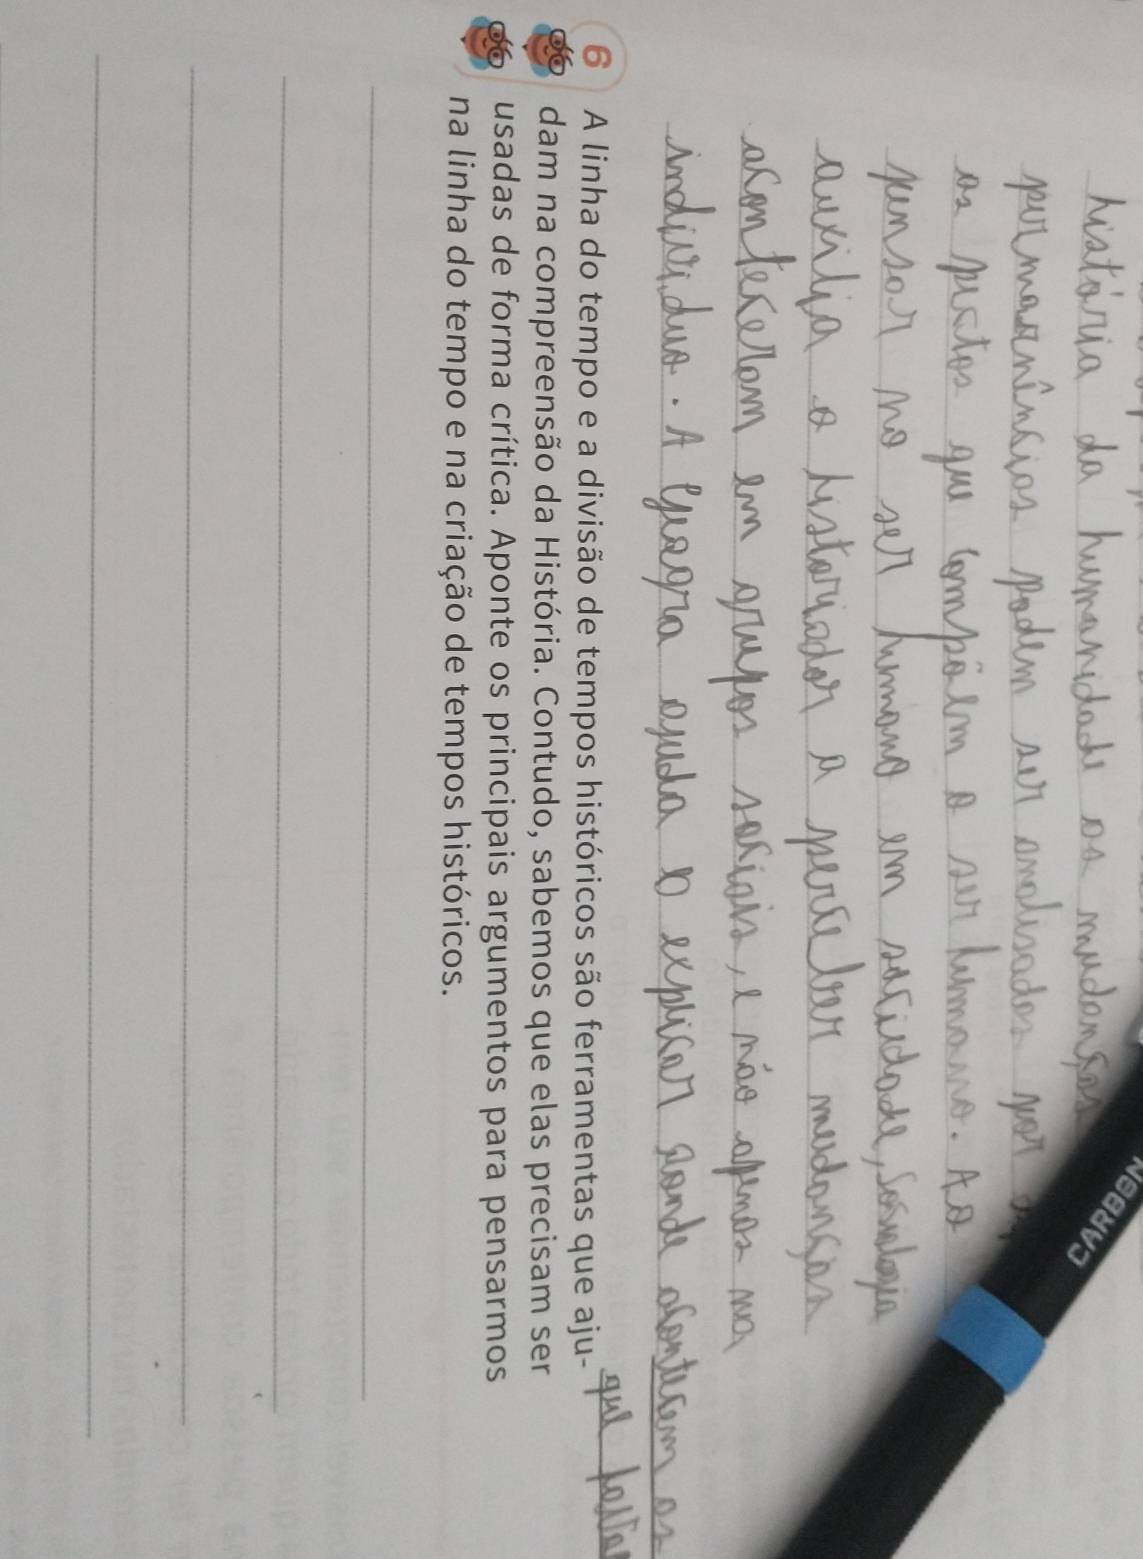 história da humanidade as mudanças
permanências podem ser analisados por
os pectos que compõem o ser humano. Ao
pensar no ser humano em sociedade, Sociologia
auxilia o historiador a perceber mudanças
aconteceram em grupos sociais, e não apenas na
indivíduo. A geogra ajuda a explicar aonde acontecem as
que fosse
6 A linha do tempo e a divisão de tempos históricos são ferramentas que aju-
dam na compreensão da História. Contudo, sabemos que elas precisam ser
usadas de forma crítica. Aponte os principais argumentos para pensarmos
na linha do tempo e na criação de tempos históricos.
CARBON